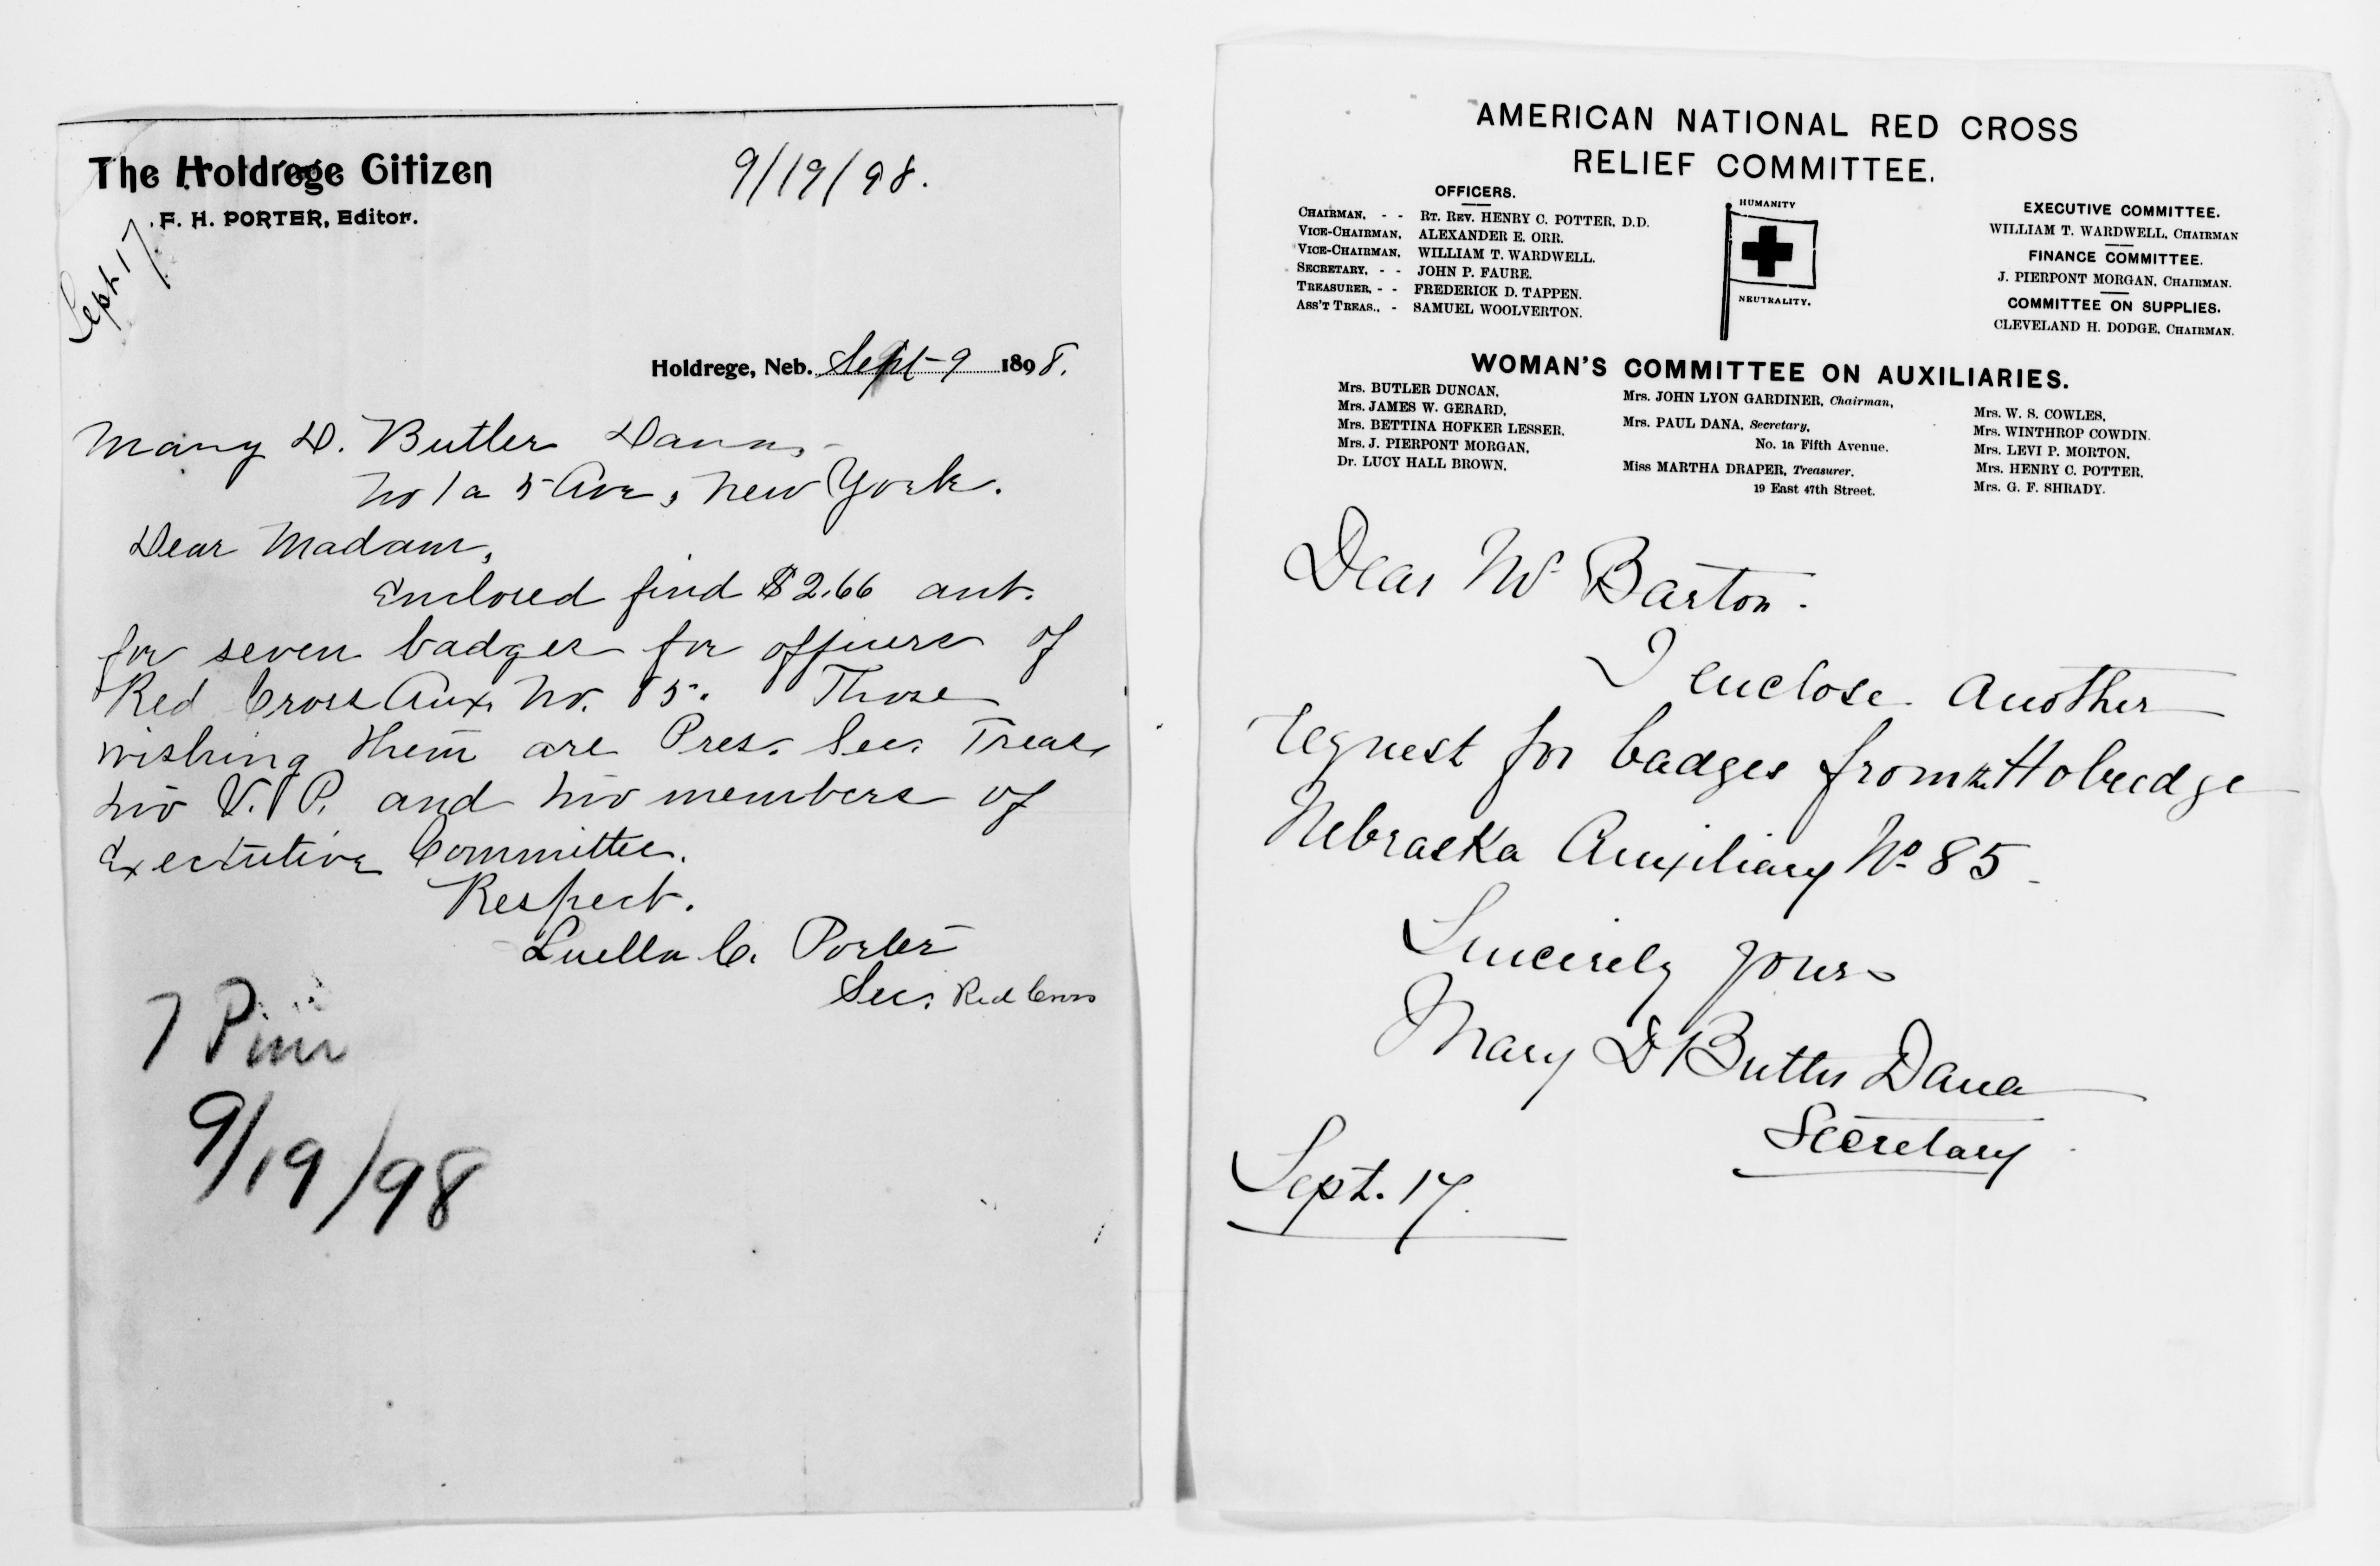 The Holdrege Citizen
F. H. PORTER, Editor.
9/19/98.
Sept. 17.
Holdrege, Neb. Sept-9 1898.
Mary D. Butler Dana,
No 1a 5 Ave, New York.
Dear Madam,
Enclosed find $2.66 amt.
for seven badges for officers of
Red Cross Aux. No. 85. Those
wishing them are Pres. Sec. Treas,
two V. P. and two members of
Executive Committee.
Respect.
Luella C. Porter
Sec. Red Cross
7 Pins
9/19/98
AMERICAN NATIONAL RED CROSS
RELIEF COMMITTEE.
OFFICERS.
CHAIRMAN, - - RT. REV. HENRY C. POTTER, D.D.
VICE-CHAIRMAN, ALEXANDER E. ORR.
VICE-CHAIRMAN, WILLIAM T. WARDWELL.
SECRETARY, - - JOHN P. FAURE.
TREASURER, - - FREDERICK D. TAPPEN.
ASS'T TREAS., - SAMUEL WOOLVERTON.
HUMANITY
NEUTRALITY.
EXECUTIVE COMMITTEE.
WILLIAM T. WARDWELL, CHAIRMAN
FINANCE COMMITTEE.
J. PIERPONT MORGAN, CHAIRMAN.
COMMITTEE ON SUPPLIES.
CLEVELAND H. DODGE, CHAIRMAN.
WOMAN'S COMMITTEE ON AUXILIARIES.
Mrs. BUTLER DUNCAN,
Mrs. JAMES W. GERARD,
Mrs. BETTINA HOFKER LESSER,
Mrs. J. PIERPONT MORGAN,
Dr. LUCY HALL BROWN,
Mrs. JOHN LYON GARDINER, Chairman,
Mrs. PAUL DANA, Secretary,
No. 1a Fifth Avenue.
Miss MARTHA DRAPER, Treasurer.
19 East 47th Street.
Mrs. W. S. COWLES,
Mrs. WINTHROP COWDIN.
Mrs. LEVI P. MORTON,
Mrs. HENRY C. POTTER,
Mrs. G. F. SHRADY.
Dear Mr Barton.
I enclose another
request for badges from the Holredge
Nebraska Auxiliary No 85
Sincerely yours
Mary D Butler Dana
Secretary
Sept. 17.